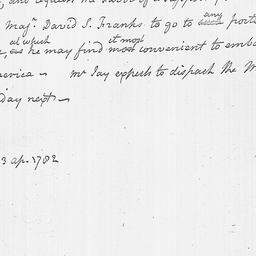 and request the favor of a
Majr. David S. Franks to go to any port
at which it most
as he may find most convenient to emba
erica — Mr Jay expects to dispatch the M
day next —
3 ap. 1782